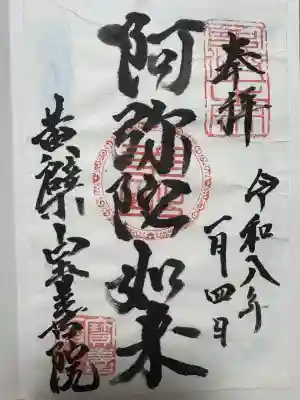 奉拝
令和八年
一月四日
阿弥陀如来
黄檗山宝善院